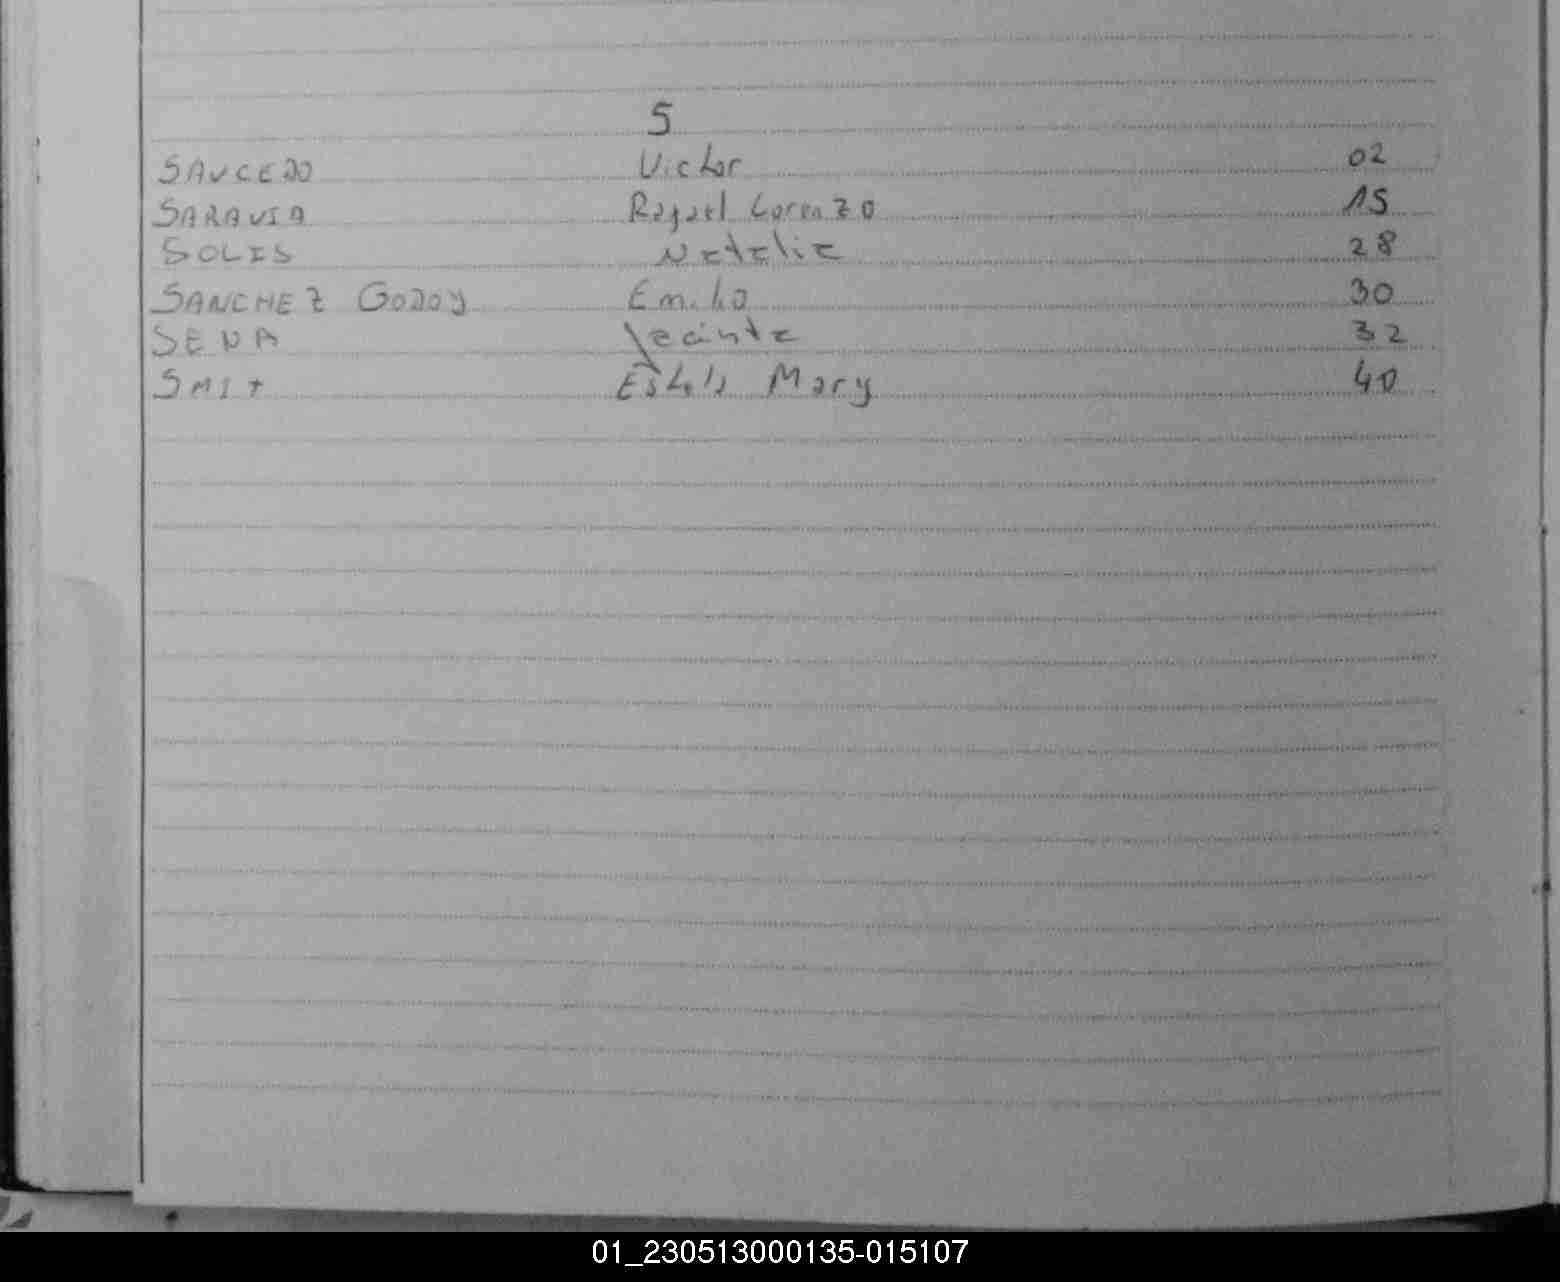 S
SAUCEDO Victor 02
SARAVIA Rafael Lorenzo 15
SOLIS Natalia 28
SANCHEZ GODOY Emilio 30
SENA Jacinta 32
SMIT Estela Mary 40
01_230513000135-015107